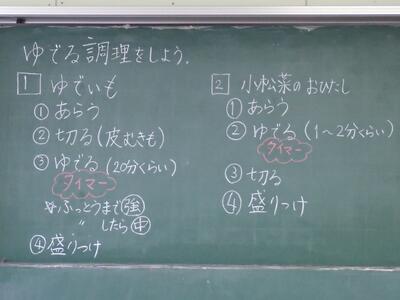 ゆでる調理をしよう.
1 ゆでいも
① あらう
② 切る(皮むきも)
③ ゆでる(20分くらい)
タイマー
☆ふっとうまで強
〃 したら中
④ 盛りつけ
2 小松菜のおひたし
① あらう
② ゆでる(1〜2分くらい)
タイマー
③ 切る
④ 盛りつけ